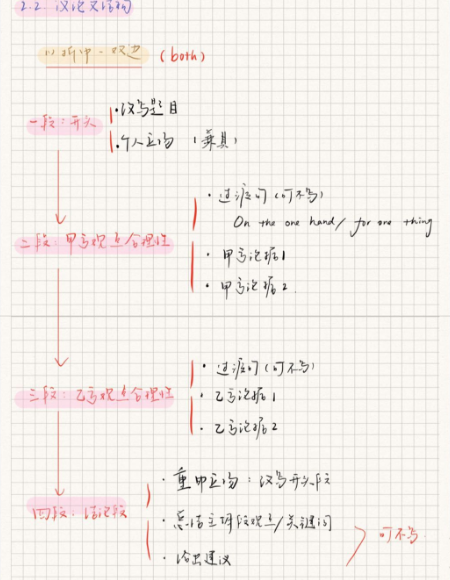 2.2 议论文结构
(1) 折中-双边 (both)
一段:开头
·改写题目
·个人立场 (兼具)
·过渡句 (可不写)
On the one hand/ for one thing
二段:甲方观点合理性
·甲方论据1
·甲方论据2
·过渡句 (可不写)
三段:乙方观点合理性
·乙方论据1
·乙方论据2
·重申立场:改写开头段
四段:结论段
·总结主体段观点/关键词
可不写
·给出建议